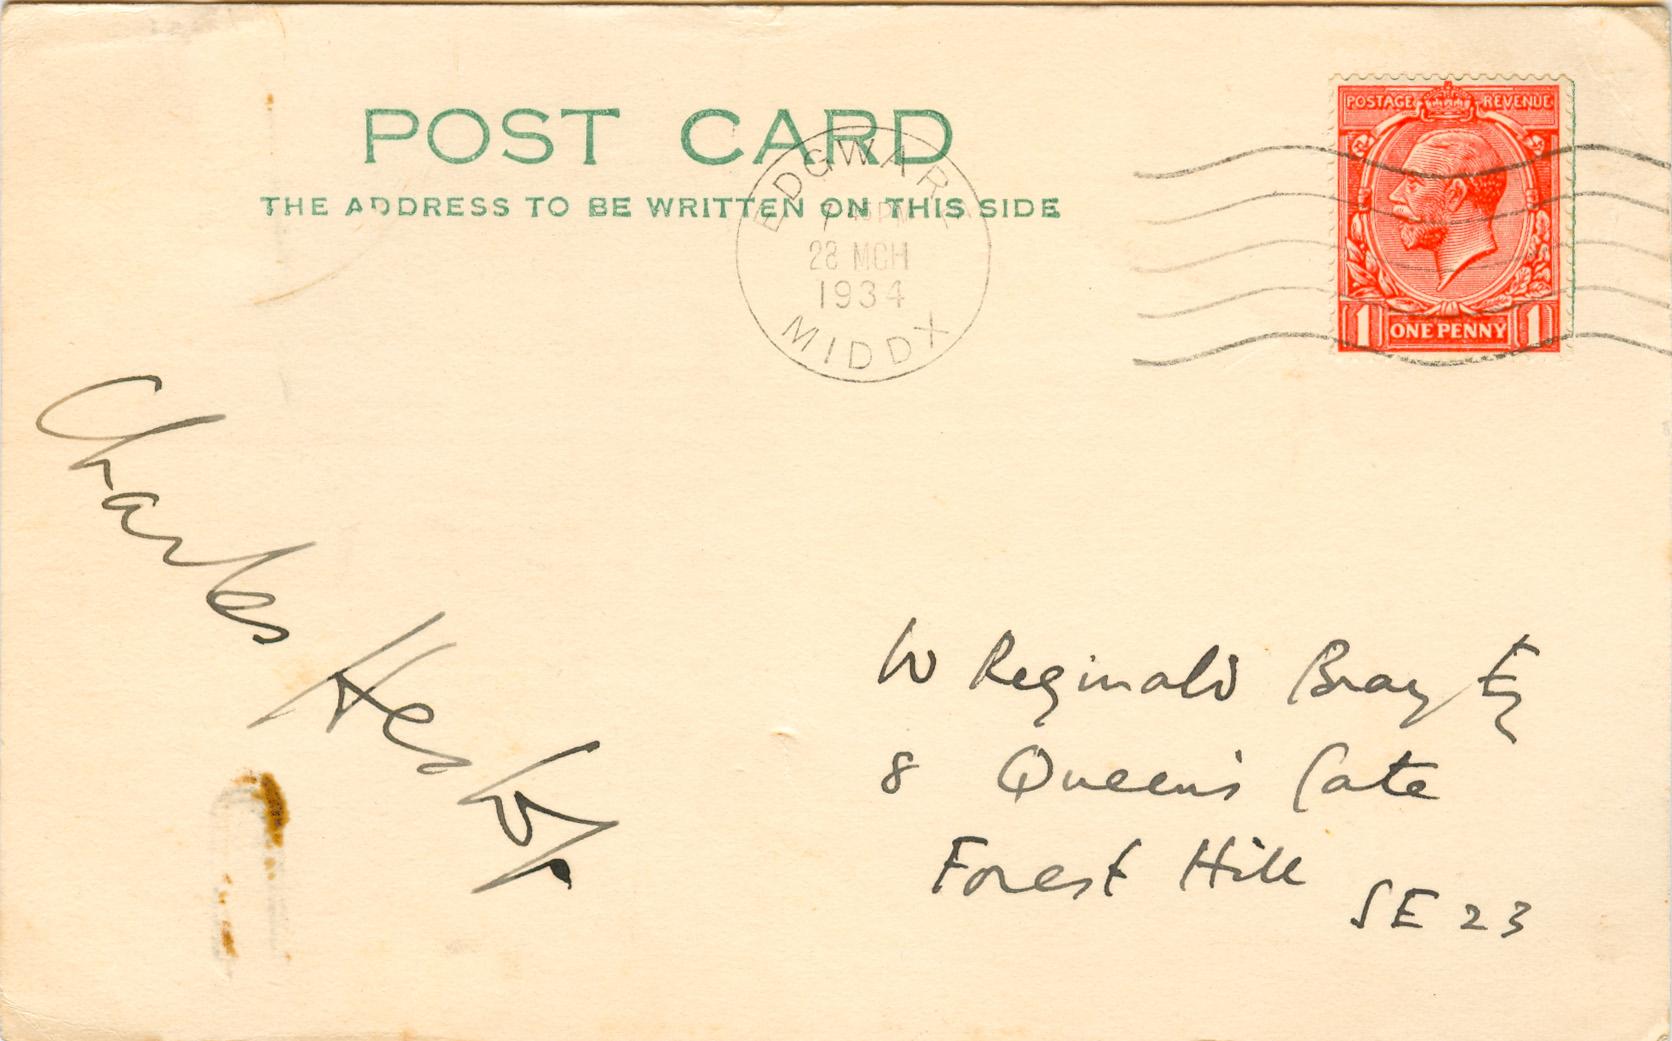 POST CARD
THE ADDRESS TO BE WRITTEN ON THIS SIDE
EDGWARE
28 MCH
1934
MIDDX
POSTAGE REVENUE
1 ONE PENNY 1
Charles
W Reginald Bray Esq
8 Queen's Gate
Forest Hill
SE 23